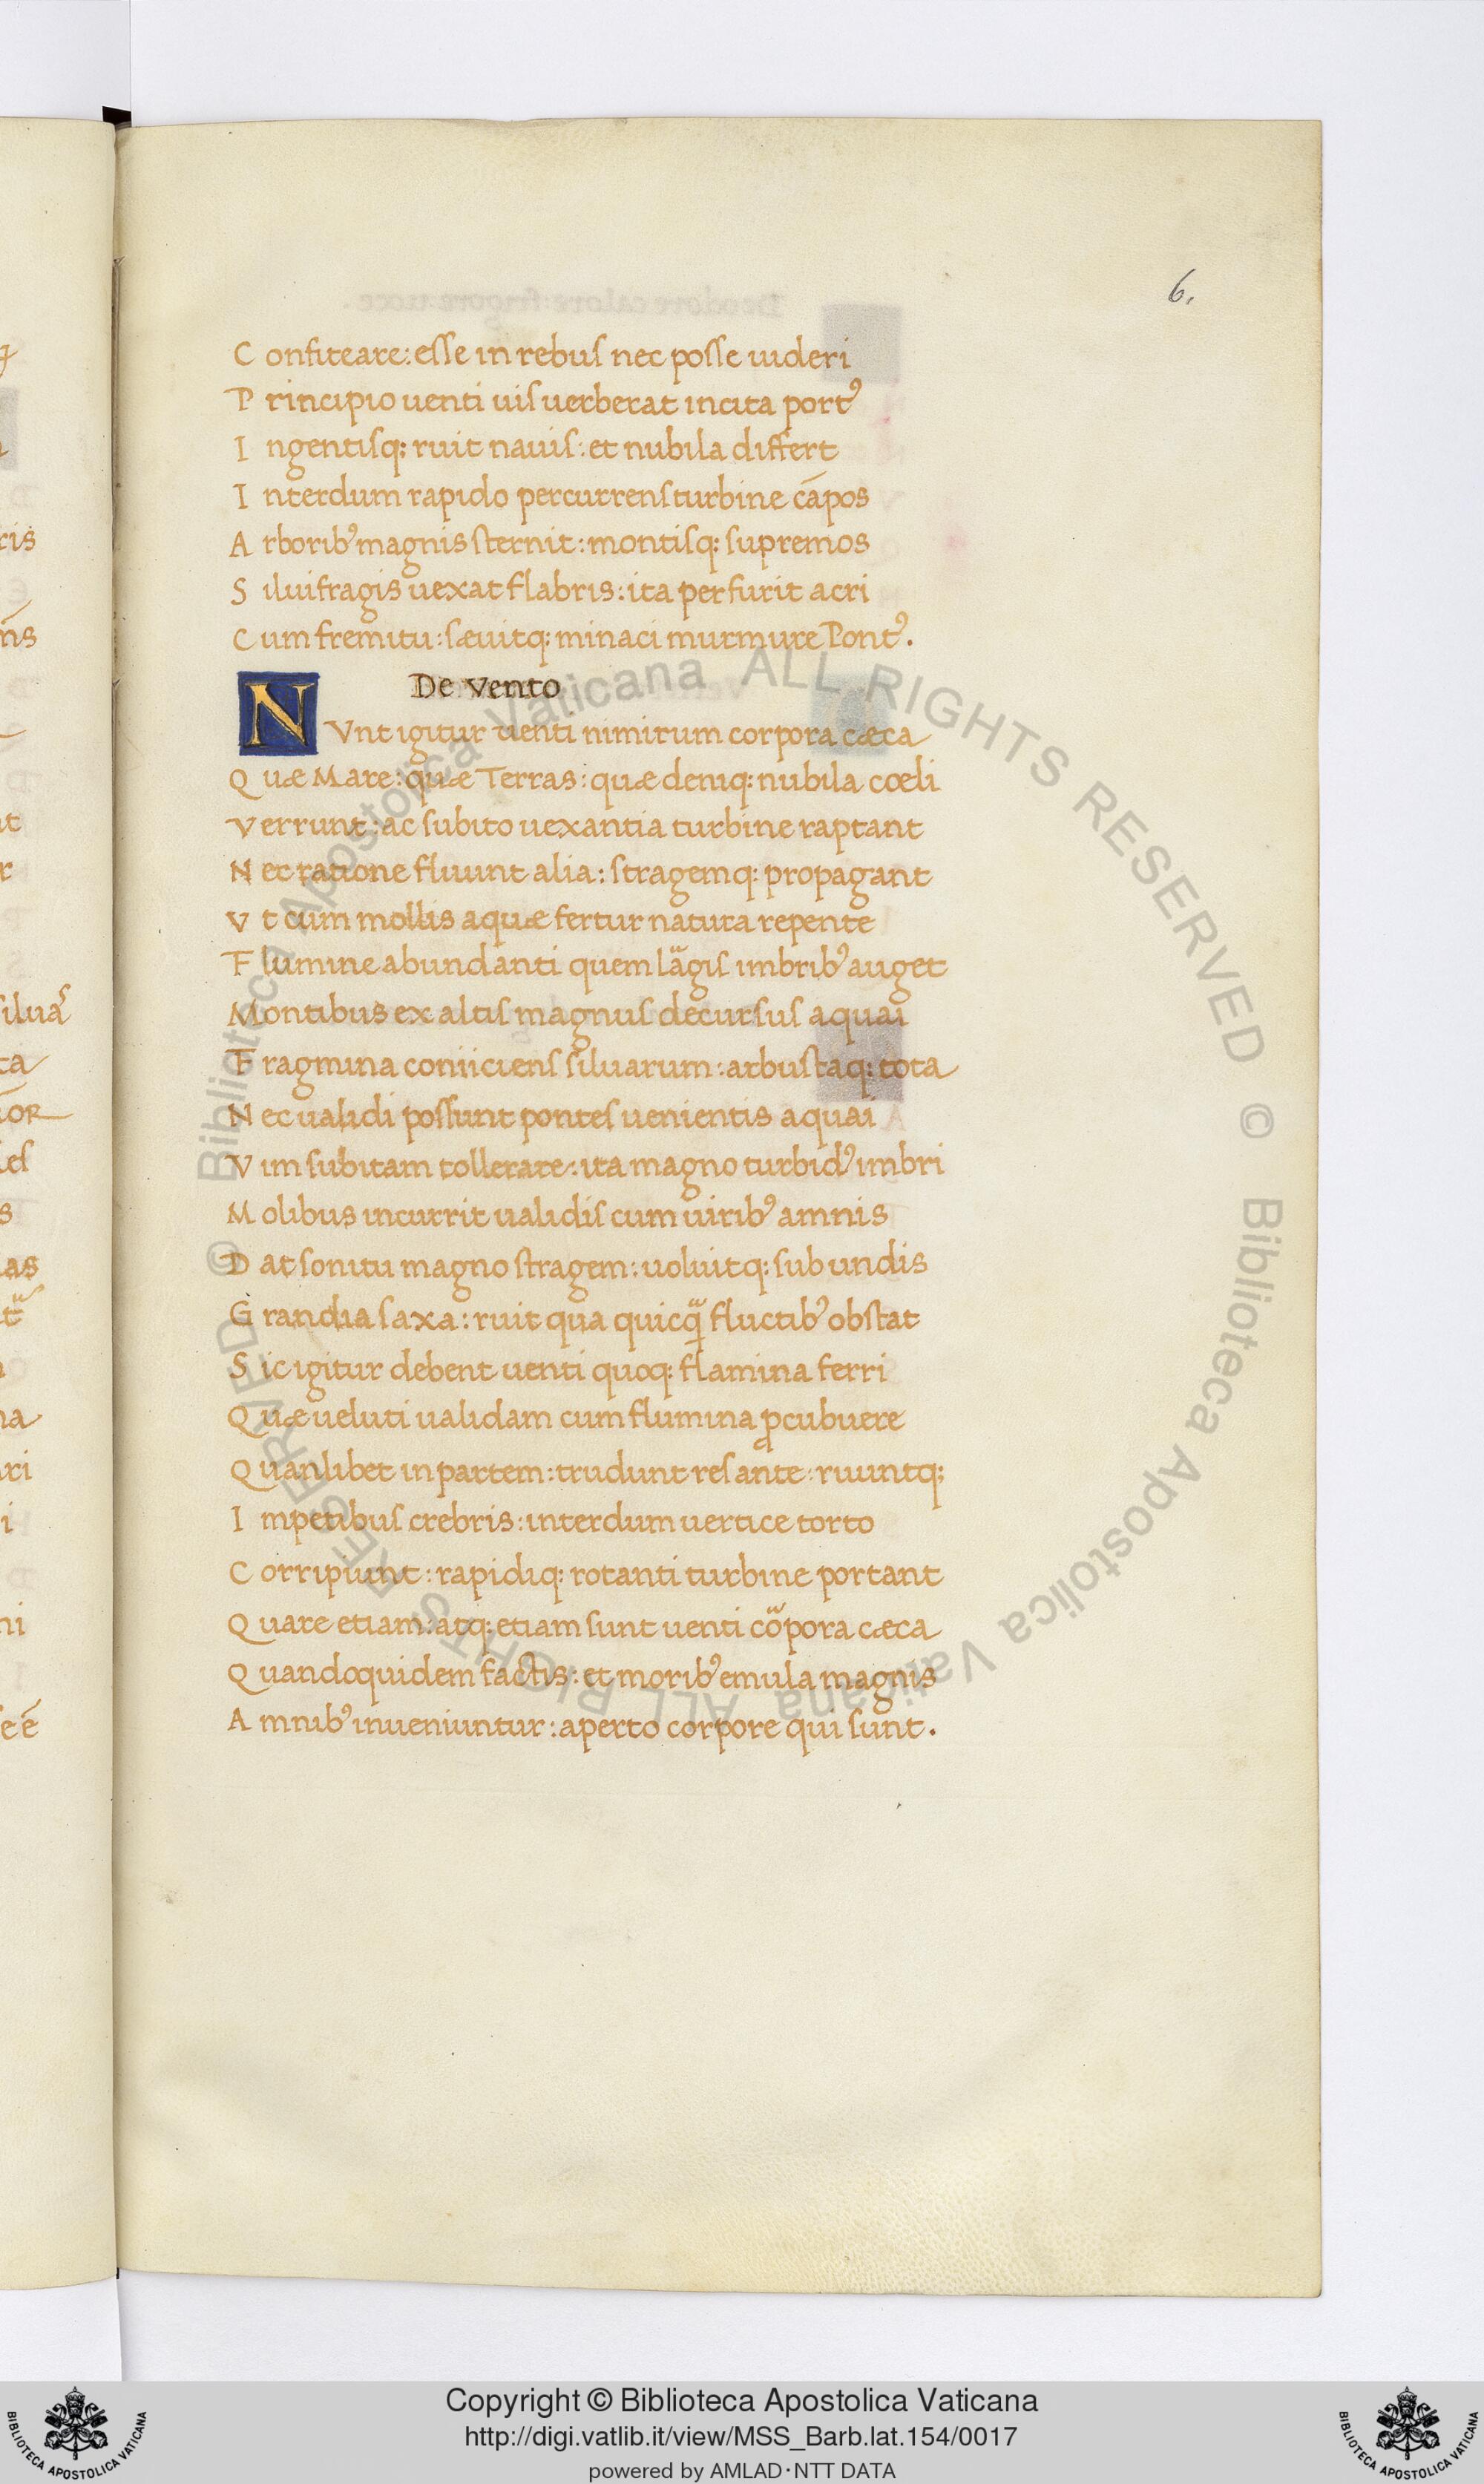 6.
C onfiteare: esse in rebus nec posse uideri
P rincipio uenti uis uerberat incita portꝰ
I ngentisq; ruit nauis: et nubila differt
I nterdum rapido percurrens turbine cāpos
A rboribꝰ magnis sternit: montisq; supremos
S iluifragis uexat flabris: ita perfurit acri
C um fremitu: sæuitq; minaci murmure Pontꝰ.
De vento
N Vnt igitur uenti nimirum corpora cæca
Q uæ Mare: quæ Terras: quæ deniq; nubila cœli
V errunt: ac subito uexantia turbine raptant
N ec ratione fluunt alia: stragemq; propagant
V t cum mollis aquæ fertur natura repente
F lumine abundanti quem lãgis imbribꝰ auget
Montibus ex altis magnus decursus aquai
F ragmina coniiciens siluarum: arbustaq; tota
N ec ualidi possunt pontes uenientis aquai
V im subitam tollerare: ita magno turbidꝰ imbri
M olibus incurrit ualidis cum uiribꝰ amnis
D at sonitu magno stragem: uoluitq; sub undis
G randia saxa: ruit qua quicq̃ fluctibꝰ obstat
S ic igitur debent uenti quoq; flamina ferri
Q uæ ueluti ualidam cum flumina ꝓcubuere
Q uanlibet in partem: trudunt res ante: ruuntq;
I mpetibus crebris: interdum uertice torto
C orripiunt: rapidiq; rotanti turbine portant
Q uare etiam: atq; etiam sunt uenti cõpora cæca
Q uandoquidem factis: et moribꝰ emula magnis
A mnibꝰ inueniuntur: aperto corpore qui sunt.
© Biblioteca Apostolica Vaticana ALL RIGHTS RESERVED © Biblioteca Apostolica Vaticana ALL RIGHTS RESERVED
BIBLIOTECA APOSTOLICA VATICANA
Copyright © Biblioteca Apostolica Vaticana
http://digi.vatlib.it/view/MSS_Barb.lat.154/0017
powered by AMLAD・NTT DATA
BIBLIOTECA APOSTOLICA VATICANA